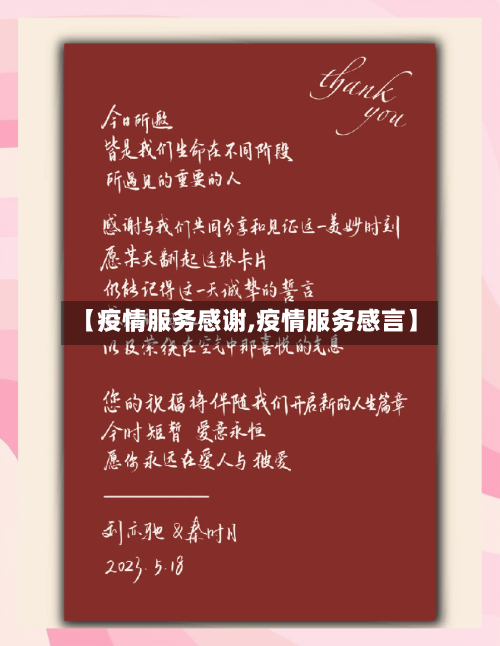 thank
you
今日所邀
皆是我们生命在不同阶段
所遇见的重要的人
感谢与我们共同分享和见证这一美妙时刻
愿某天翻起这张卡片
仍能记得这一天诚挚的誓言
【疫情服务感谢,疫情服务感言】
以及荣绕在空气中那喜悦的气息
您的祝福将伴随我们开启新的人生篇章
今时短暂 爱意永恒
愿你永远在爱人与被爱
刘亦驰 & 秦时月
2023.5.18